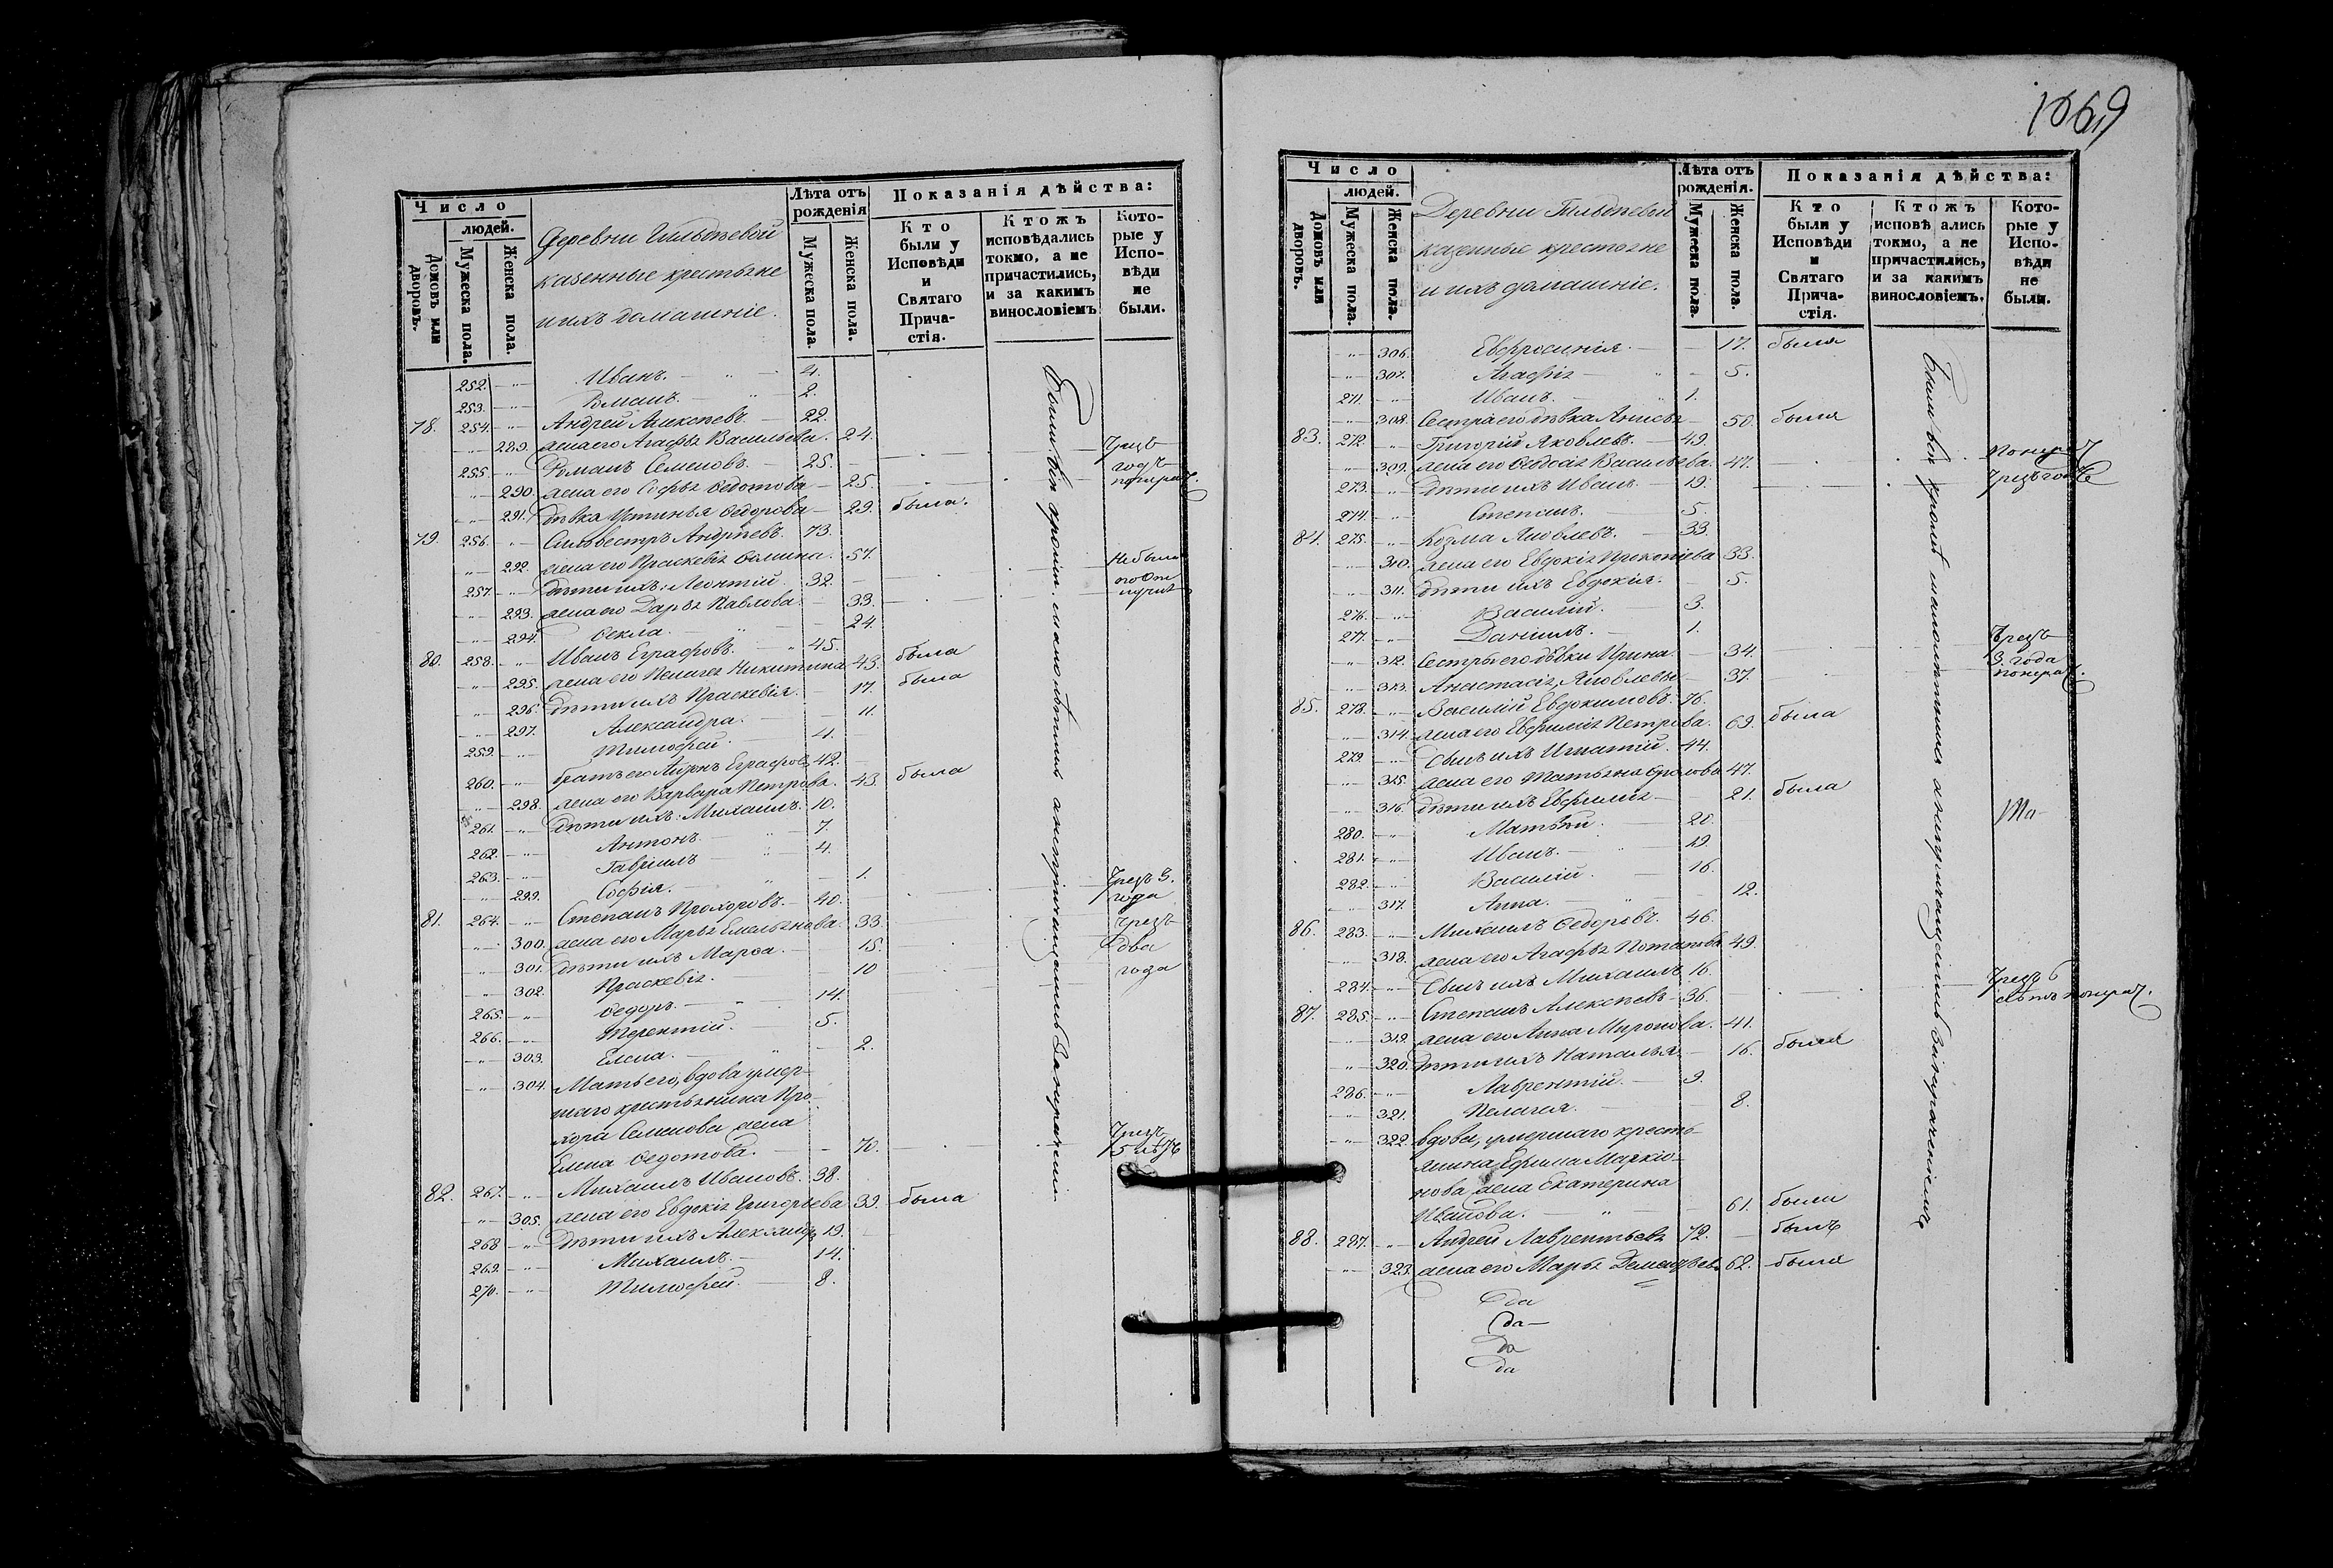 1669
Число
людей.
Домовъ или дворовъ.
Мужеска пола.
Женска пола.
Деревни Гильдѣевой
казенные крестьяне
и ихъ домашніе.
Лѣта отъ рожденія
Мужеска пола.
Женска пола.
Показанія дѣйства:
Кто были у Исповѣди и Святаго Причастія.
Ктожъ исповѣдались токмо, а не причастились, и за какимъ винословіемъ.
Которые у Исповѣди не были.
252. Иванъ. 4.
253. Романъ. 2.
78. 254. Андрей Алексѣевъ. 22.
289. жена его Агафья Васильева. 24.
255. Романъ Семеновъ. 25.
290. жена его Софья Ѳедотова 25.
291. дѣвка Устинья Ѳедорова 29. была.
79. 256. Сильвестръ Андреевъ. 73.
292. жена его Праскевія Ѳомина. 57.
257. дѣти ихъ: Леонтій. 32.
293. жена его Дарья Павлова. 33.
294. Ѳекла. 24.
80. 258. Иванъ Еграфовъ. 45.
295. жена его Пелагея Никитина. 43. была
296. дѣти ихъ Праскевія. 17. была
297. Александра. 11.
259. Тимофей. 4.
260. братъ его Еграфовъ 42.
298. жена его Варвара Петрова. 43. была
261. дѣти ихъ: Михаилъ. 10.
262. Антонъ. 7.
263. Гавріилъ 4.
299. Софія. 1.
81. 264. Степанъ Прохоровъ. 40.
300. жена его Марья Емельянова. 33.
301. дѣти ихъ Марѳа. 15.
302. Праскевія. 10
265. Ѳедоръ. 14.
266. Терентій. 5.
303. Елена. 2.
304. Мать его, вдова умер-
шаго крестьянина Про-
хора Семенова жена
Елена Ѳедотова. 70.
82. 267. Михаилъ Ивановъ. 38.
305. жена его Евдокія Григорьева 39. была
268. дѣти ихъ Александръ 19.
269. Михаилъ. 14.
270. Тимофей. 8.
Были всѣ кромѣ малолѣтнихъ
Чрезъ
годъ
Не были
Чрезъ 3.
года
Чрезъ
два
года
Чрезъ
5 лѣтъ
Число
людей.
Домовъ или дворовъ.
Мужеска пола.
Женска пола.
Деревни Гильдѣевой
казенные крестьяне
и ихъ домашніе.
Лѣта отъ рожденія.
Мужеска пола.
Женска пола.
Показанія дѣйства:
Кто были у Исповѣди и Святаго Причастія.
Ктожъ исповѣ ались токмо, а не причастились, и за какимъ винословіемъ.
Которые у Исповѣди не были.
306. Евфросинія. 17. была
307. Агафія 5.
271. Иванъ. 1.
308. Сестра его дѣвка Анисья 50. была
83. 272. Григорій Яковлевъ. 49.
309. жена его Ѳедосія Васильева. 47.
273. дѣти ихъ Иванъ. 19.
274. Степанъ. 5.
84. 275. Козма Яковлевъ. 33.
310. жена его Евдокія Прокопіева 33.
311. дѣти ихъ Евдокія. 5.
276. Василій. 3.
277. Даніилъ. 1.
312. Сестры его дѣвки Ирина. 34.
313. Анастасія, Яковлевы 37.
85. 278. Василій Евдокимовъ. 76.
314. жена его Евфимія Петрова. 69. была
279. Сынъ ихъ Игнатій. 44.
315. жена его Татьяна 47.
316. дѣти ихъ Евфимія 21. была
280. Матвѣй. 20.
281. Иванъ. 19.
282. Василій. 16.
317. Анна. 12.
86. 283. Михаилъ Ѳедоровъ. 46.
318. жена его Агафья Потапова 49.
284. Сынъ ихъ Михаилъ 16.
87. 285. Степанъ Алексѣевъ 36.
319. жена его Анна Миронова. 41.
320. дѣти ихъ Наталья 16. была
286. Лаврентій. 9.
321. Пелагея. 8.
322. вдова, умершаго кресть-
янина Ефима Маркіо-
нова жена Екатерина
Иванова. 61. была
88. 287. Андрей Лаврентьевъ 72. былъ
323. жена его Марья 62. была
да
да
да
да
Были всѣ кромѣ малолѣтнихъ
Чрезъ годъ
Чрезъ
3. года
Чрезъ 6